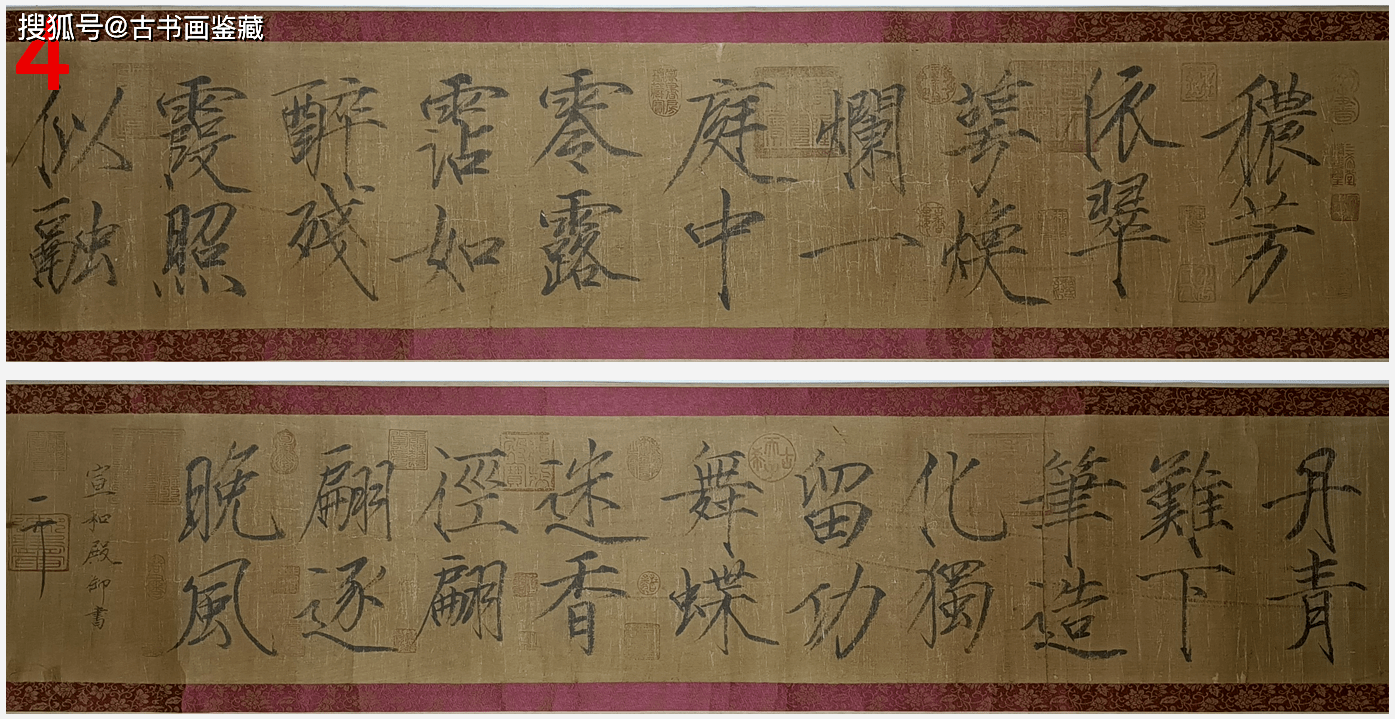 搜狐号@古书画鉴藏
4
穠芳
依翠
萼煥
爛一
庭中
零露
霑如
醉殘
霞照
似融
丹青
難下
筆造
化獨
留功
舞蝶
迷香
徑翩
翩逐
晚風
宣和殿御書